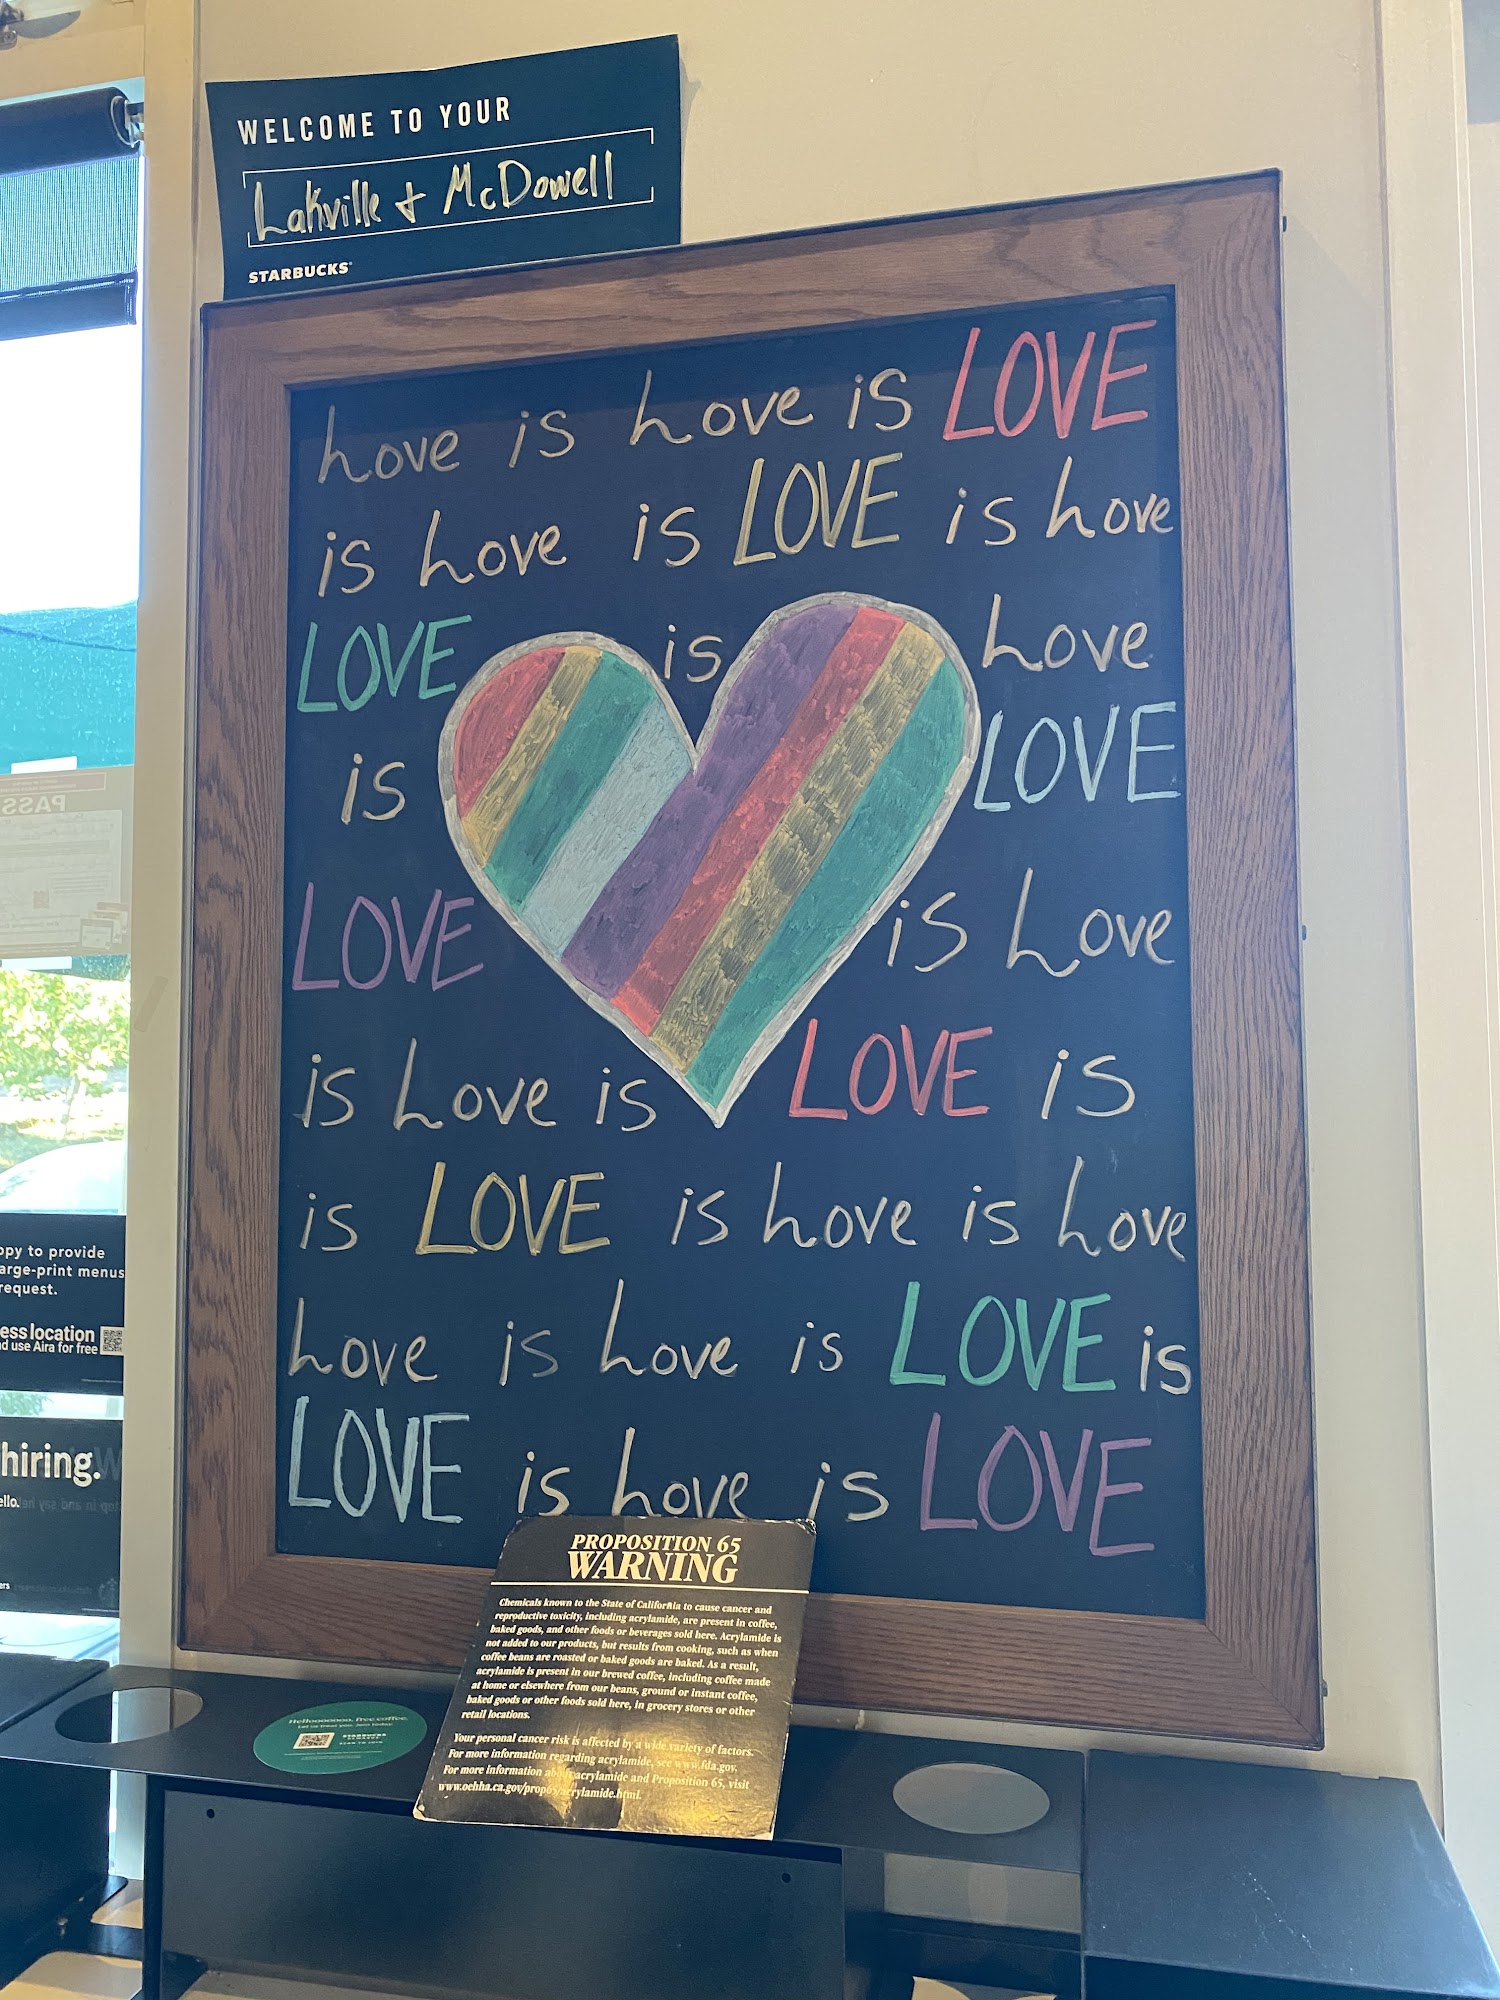 WELCOME TO YOUR
Lakville + McDowell
STARBUCKS
Love is Love is LOVE
is Love is LOVE is Love
LOVE is Love
is LOVE
LOVE is Love
is Love is LOVE is
is LOVE is Love is Love
Love is Love is LOVE is
LOVE is Love is LOVE
PROPOSITION 65
WARNING
Chemicals known to the State of California to cause cancer and
reproductive toxicity, including acrylamide, are present in coffee,
baked goods, and other foods or beverages sold here. Acrylamide is
not added to our products, but results from cooking, such as when
coffee beans are roasted or baked goods are baked. As a result,
acrylamide is present in our brewed coffee, including coffee made
at home or elsewhere from our beans, ground or instant coffee,
baked goods or other foods sold here, in grocery stores or other
retail locations.
Your personal cancer risk is affected by a wide variety of factors.
For more information regarding acrylamide, see www.fda.gov.
For more information about acrylamide and Proposition 65, visit
www.oehha.ca.gov/prop65/acrylamide.html.
Helloooooooo, free coffee.
Let us treat you. Join today.
STARBUCKS
REWARDS
SCAN TO JOIN
PASS
ppy to provide
arge-print menus
request.
ess location
nd use Aira for free
hiring.
ello.